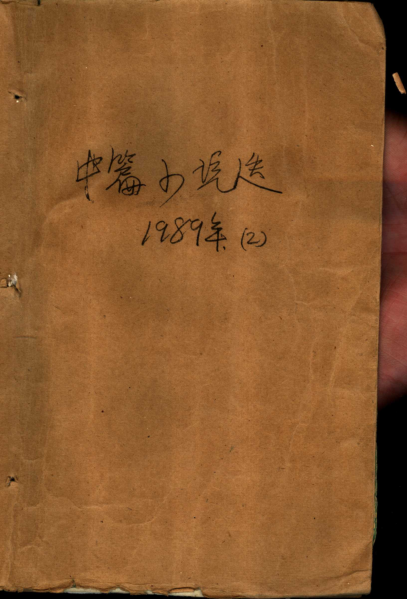 中篇小说选
1989年(2)